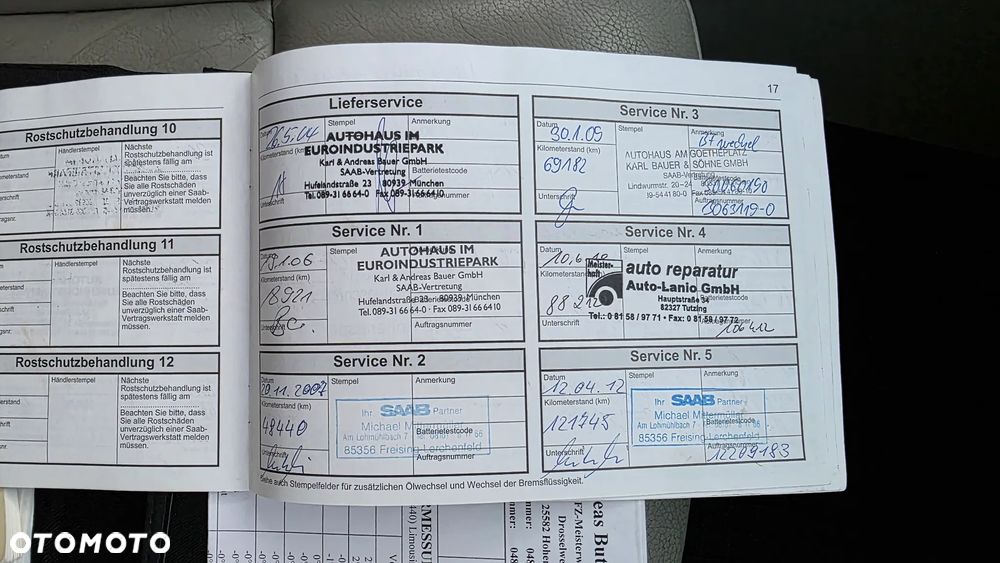 17
Rostschutzbehandlung 10
Händlerstempel
Nächste
Rostschutzbehandlung ist
spätestens fällig am
Beachten Sie bitte, dass
Sie alle Rostschäden
unverzüglich einer Saab-
Vertragswerkstatt melden
müssen.
Rostschutzbehandlung 11
Händlerstempel
Nächste
Rostschutzbehandlung ist
spätestens fällig am
Beachten Sie bitte, dass
Sie alle Rostschäden
unverzüglich einer Saab-
Vertragswerkstatt melden
müssen.
Rostschutzbehandlung 12
Händlerstempel
Nächste
Rostschutzbehandlung ist
spätestens fällig am
Beachten Sie bitte, dass
Sie alle Rostschäden
unverzüglich einer Saab-
Vertragswerkstatt melden
müssen.
Lieferservice
Datum
Stempel
Anmerkung
26.5.04
AUTOHAUS IM
EUROINDUSTRIEPARK
Kilometerstand (km)
Karl & Andreas Bauer GmbH
SAAB-Vertretung
Batterietestcode
Hufelandstraße 23 80939 München
Tel. 089-31 66 64-0 Fax 089-31 66 64 10
Service Nr. 1
Stempel
AUTOHAUS IM
EUROINDUSTRIEPARK
Kilometerstand (km)
Karl & Andreas Bauer GmbH
SAAB-Vertretung
18921
Hufelandstraße 23 80939 München
Tel. 089-31 66 64-0 · Fax 089-31 66 64 10
Unterschrift
Auftragsnummer
Service Nr. 2
Datum
Stempel
Anmerkung
20.11.2007
Kilometerstand (km)
Ihr SAAB Partner
48440
Am Lohmühlbach 7
Batterietestcode
85356 Freising-Lerchenfeld
Unterschrift
Auftragsnummer
Siehe auch Stempelfelder für zusätzlichen Ölwechsel und Wechsel der Bremsflüssigkeit.
Service Nr. 3
Datum
Stempel
Anmerkung
30.1.09
Kilometerstand (km)
AUTOHAUS AM GOETHEPLATZ
KARL BAUER & SÖHNE GMBH
69182
Lindwurmstr. 20–24
Unterschrift
Auftragsnummer
3063119-0
Service Nr. 4
Datum
Stempel
Anmerkung
Kilometerstand
Meister-
haft
auto reparatur
Auto-Lanio GmbH
88 212
Batterietestcode
Hauptstraße 34
82327 Tutzing
Unterschrift
Tel.: 0 81 58 / 97 71 • Fax: 0 81 58 / 97 72
106412
Service Nr. 5
Datum
Stempel
Anmerkung
12.04.12
Kilometerstand (km)
Ihr SAAB Partner
121745
Michael
Am Lohmühlbach 7
Batterietestcode
85356 Freising-Lerchenfeld
Unterschrift
Auftragsnummer
12209183
OTOMOTO